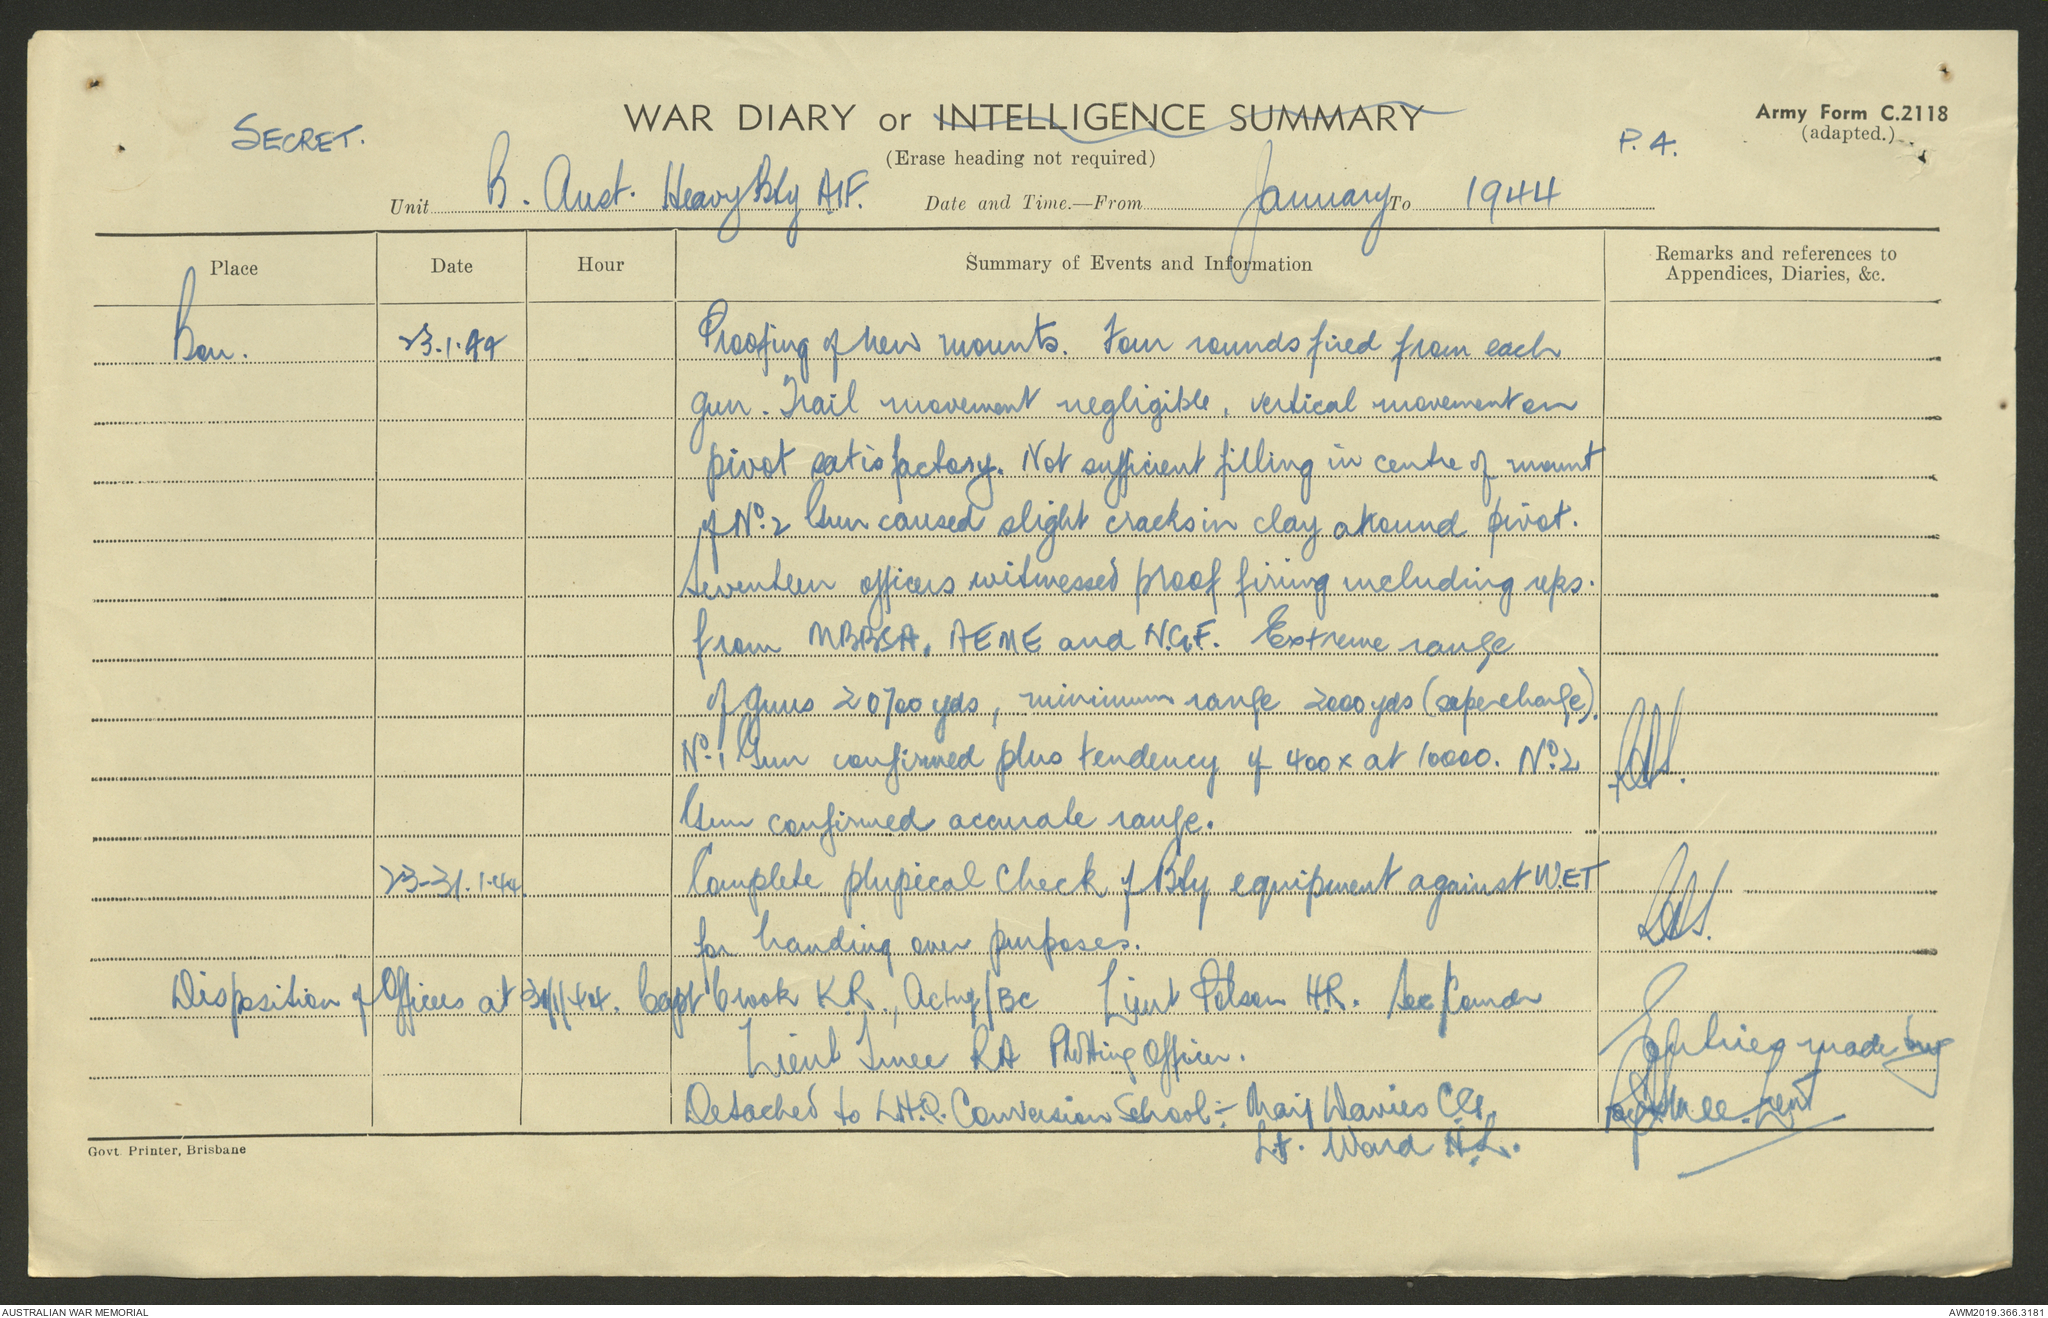 SECRET.
WAR DIARY or INTELLIGENCE SUMMARY
Army Form C.2118
(adapted.)
(Erase heading not required)
P. 4.
Unit B. Aust. Heavy Bty AIF. Date and Time.—From January To 1944
Place Date Hour Summary of Events and Information Remarks and references to
Appendices, Diaries, &c.
23.1.44 Proofing of new mounts. Four rounds fired from each
gun. Trail movement negligible, vertical movement on
pivot satisfactory. Not sufficient filling in centre of mount
of No. 2 Gun caused slight cracks in clay around pivot.
Seventeen officers witnessed proof firing including reps.
from AEME and N.G.F. Extreme range
of guns 20700 yds, minimum range 2000 yds (supercharge).
No. 1 Gun confirmed plus tendency of 400x at 10000. No. 2
Gun confirmed accurate range.
23-31.1.44 Complete physical check of Bty equipment against W.ET
for handing over purposes.
Disposition of Officers at 31/1/44. Capt Crook K.R., Actng/BC Lieut Polson H.R. Sec Comdr
Lieut RA Plotting Officer.
Detached to L.H.Q. Conversion School:- Maj Davies
Lt. Ward H.L.
Entries made by
Lieut
Govt. Printer, Brisbane
AUSTRALIAN WAR MEMORIAL
AWM2019.366.3181